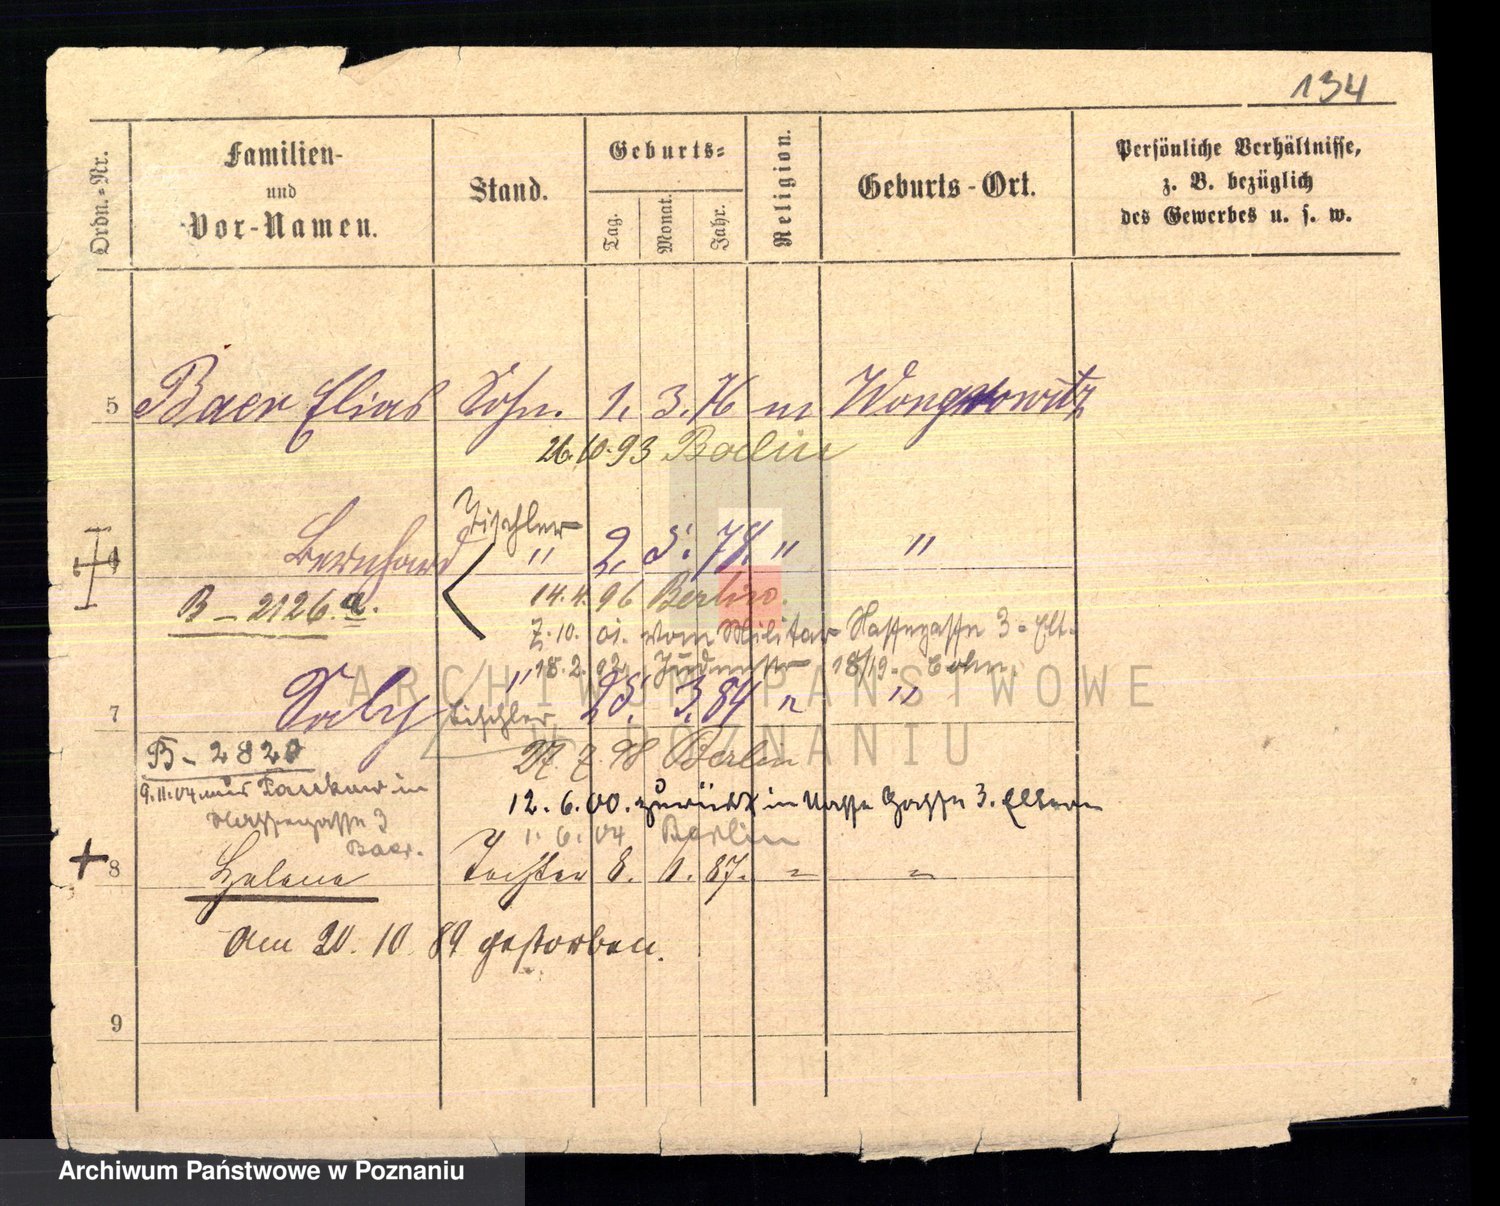 134
Ordn.-Nr.
Familien-
und
Vor-Namen.
Stand.
Geburts-
Tag.
Monat.
Jahr.
Religion.
Geburts-Ort.
Persönliche Verhältnisse,
z. B. bezüglich
des Gewerbes u. s. w.
5 Baer Elias Sohn. 1. 3. 76 m Wongrowitz
26.10.93 Berlin
Tischler
6 Bernhard " 2. 5. 78. " "
B - 2126.a. 14.4.96 Berlin.
7.10. 01. vom Militär Nassegasse 3 - Elt.
18.2.02 18/19.
7 Saly " Tischler 25. 3. 84 " "
B - 2820 27.7.98 Berlin
9.11.04 in 12.6.00. zurück in Nasse Gasse 3. Eltern
Nassegasse 3 1.6.04 Berlin
Baer.
8 Helene Tochter 8. 1. 87. " "
Am 20.10.89 gestorben.
9
ARCHIWUM PAŃSTWOWE
W POZNANIU
Archiwum Państwowe w Poznaniu